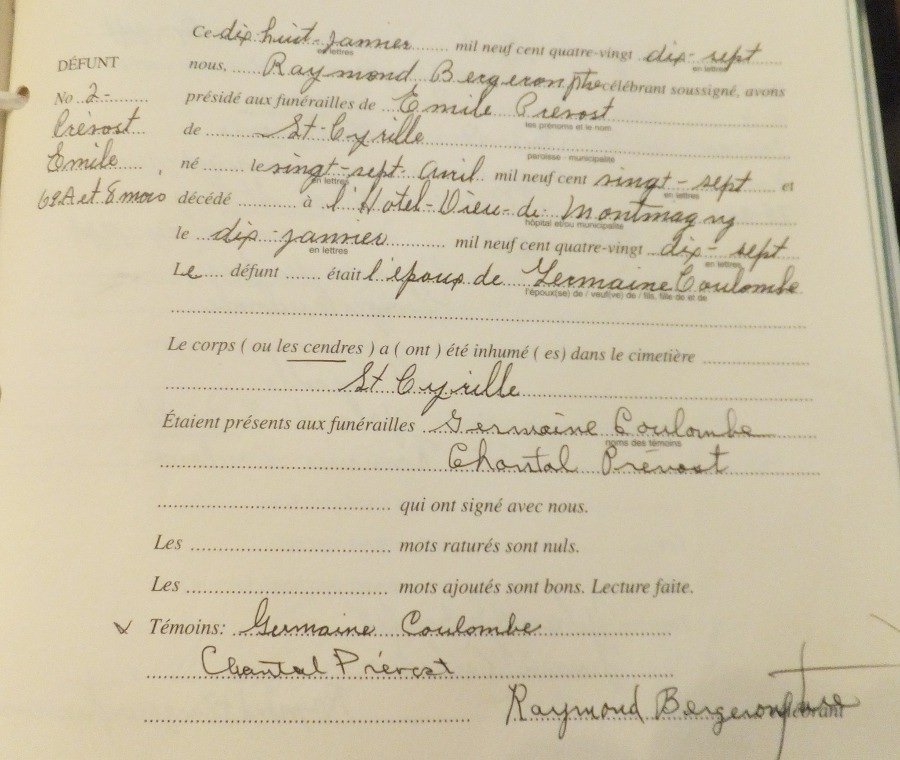 Ce dix huit janvier mil neuf cent quatre-vingt dix-sept
en lettres en lettres
DÉFUNT
nous, Raymond Bergeron ptre célébrant soussigné, avons
No 2-
présidé aux funérailles de Emile Prévost
les prénoms et le nom
Prévost
de St-Cyrille
paroisse - municipalité
Emile
né le vingt-sept avril mil neuf cent vingt-sept et
en lettres en lettres
69A et 8 mois
décédé à l'Hotel-Dieu-de Montmagny
hôpital et/ou municipalité
le dix-janvier mil neuf cent quatre-vingt dix-sept
en lettres en lettres
Le défunt était l'époux de Germaine Coulombe
l'époux(se) de / veuf(ve) de / fils, fille de et de
Le corps ( ou les cendres ) a ( ont ) été inhumé ( es) dans le cimetière
St Cyrille
Étaient présents aux funérailles Germaine Coulombe
noms des témoins
Chantal Prévost
qui ont signé avec nous.
Les mots raturés sont nuls.
Les mots ajoutés sont bons. Lecture faite.
Témoins: Germaine Coulombe
Chantal Prévost
Raymond Bergeron ptre célébrant